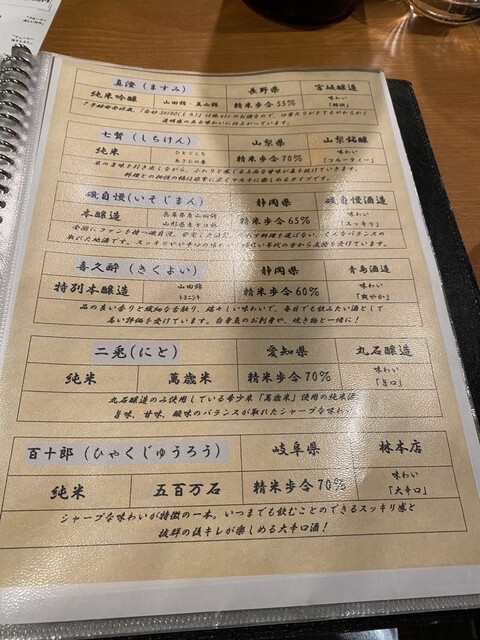 真澄(ますみ) 長野県 宮坂醸造
純米吟醸 山田錦・美山錦 精米歩合55% 味わい
七賢(しちけん) 山梨県 山梨銘醸
純米 ひとごこち 精米歩合70% 味わい
あさひの夢 「フルーティー」
磯自慢(いそじまん) 静岡県 磯自慢酒造
本醸造 兵庫県産山田錦 精米歩合65% 味わい
「スッキリ」
喜久酔(きくよい) 静岡県 青島酒造
特別本醸造 山田錦 精米歩合60% 味わい
トヨニシキ 「爽やか」
品の良い香りと繊細な含触り、瑞々しい味わいで、毎日でも飲みたい酒として
高い評価を受けています。白身魚のお刺身や、焼き物と一緒に!
二兎(にと) 愛知県 丸石醸造
純米 萬歳米 精米歩合70% 味わい
「旨口」
丸石醸造のみ使用している希少米「萬歳米」使用の純米酒。
旨味、甘味、酸味のバランスが取れたシャープな味わい
百十郎(ひゃくじゅうろう) 岐阜県 林本店
純米 五百万石 精米歩合70% 味わい
「大辛口」
シャープな味わいが特徴の一本。いつまでも飲むことのできるスッキリ感と
抜群の後キレが楽しめる大辛口酒!